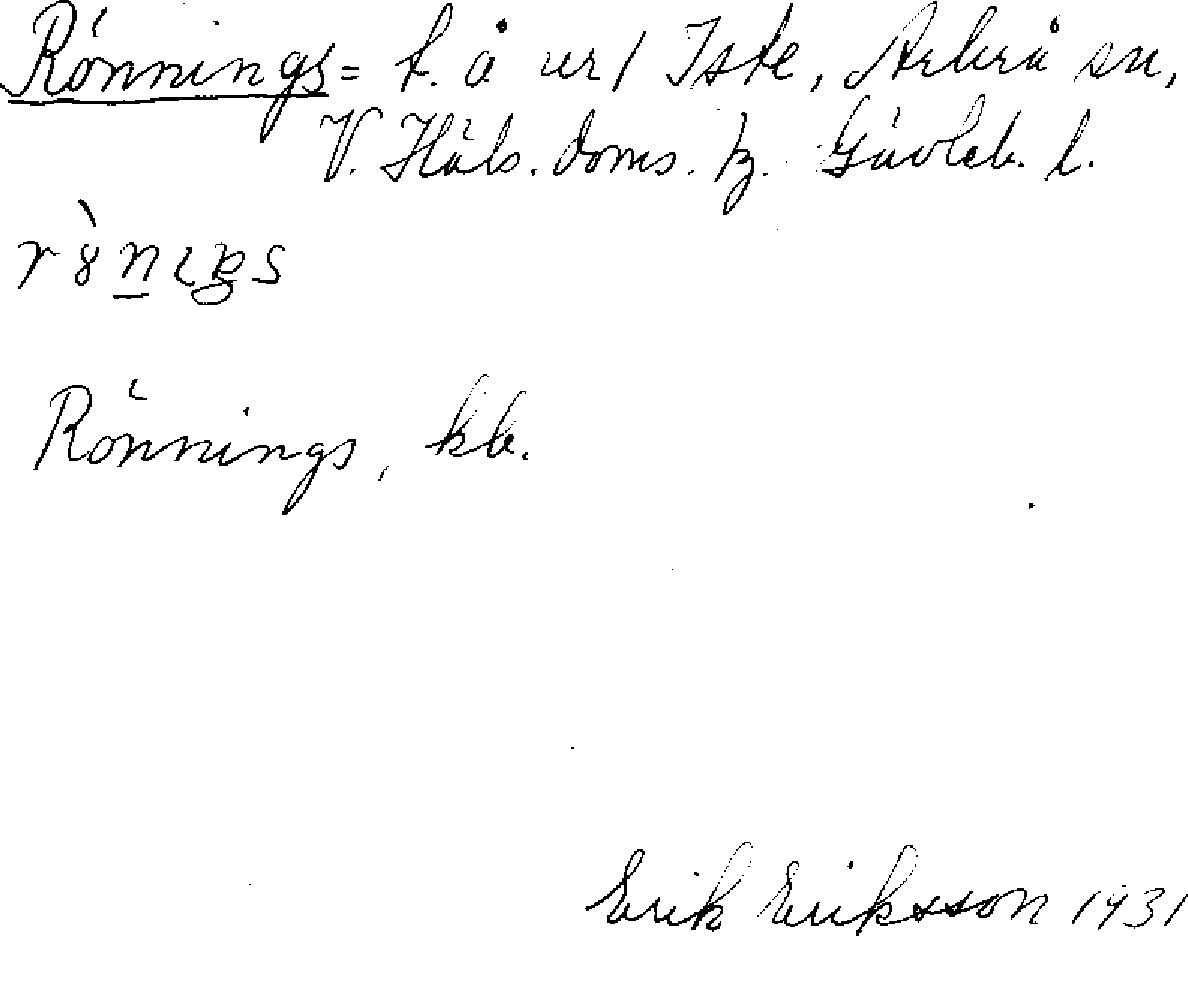 Rönnings= t. å nr1 Iste, Arbrå sn,
V. Häls. doms. hg. Gävleb. l.
Rönnings, kb.
Erik Eriksson 1931